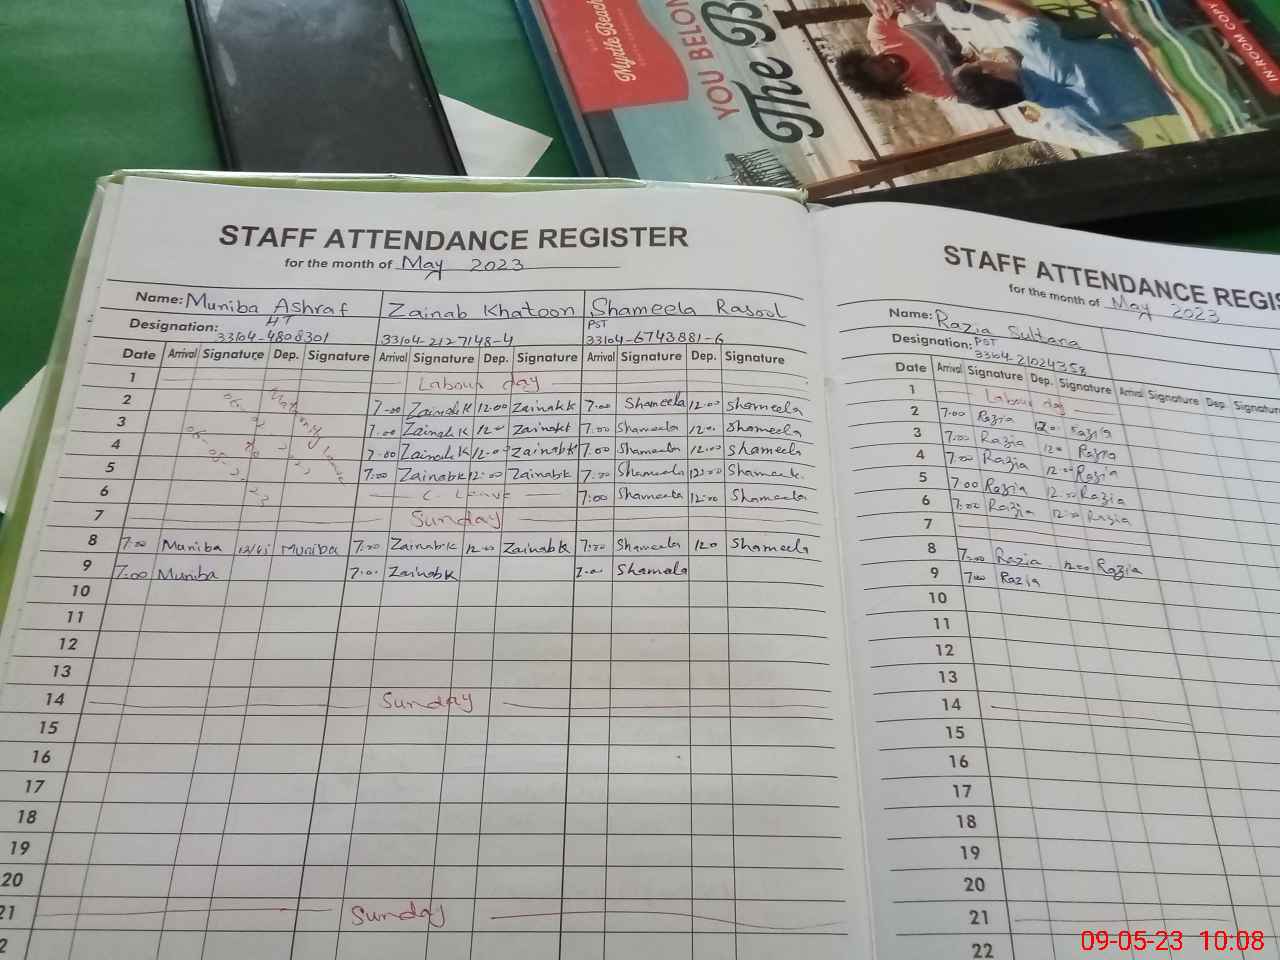 Myrtle Beach
YOU BELON
The B
IN-ROOM COPY
STAFF ATTENDANCE REGISTER
for the month of May 2023
Name: Muniba Ashraf Zainab Khatoon Shameela Rasool
Designation: HT PST
33104-4808301 33104-2127148-4 33104-6743881-6
Date Arrival Signature Dep. Signature Arrival Signature Dep. Signature Arrival Signature Dep. Signature
1 Labour day
2 7-00 Zainab K 12.00 Zainab K 7.00 Shameela 12.00 Shameela
3 7.00 Zainab K 12.0 Zainab K 7.00 Shameela 12.0 Shameela
4 7-00 Zainab K 12.00 Zainab K 7.00 Shameela 12.00 Shameela
5 7:00 Zainab K 12:00 Zainab K 7.00 Shameela 12:00 Shameela
6 C. Leave 7:00 Shameela 12:00 Shameela
7 Sunday
8 7:00 Muniba Muniba 7:00 Zainab K 12.00 Zainab K 7:00 Shameela 12.0 Shameela
9 7:00 Muniba 7.0. Zainab K 7.0. Shameela
10
11
12
13
14 Sunday
15
16
17
18
19
20
21 Sunday
2
STAFF ATTENDANCE REGIS
for the month of May 2023
Name: Razia Sultana
Designation: PST
33104-21024358
Date Arrival Signature Dep. Signature Arrival Signature Dep. Signature
1 Labour day
2 7:00 Razia 12.0. Razia
3 7:00 Razia 12.0 Razia
4 7:00 Razia 12.00 Razia
5 7:00 Razia 12.00 Razia
6 7:00 Razia 12:00 Razia
7
8 7:00 Razia 12.00 Razia
9 7:00 Razia
10
11
12
13
14
15
16
17
18
19
20
21
22
09-05-23 10:08